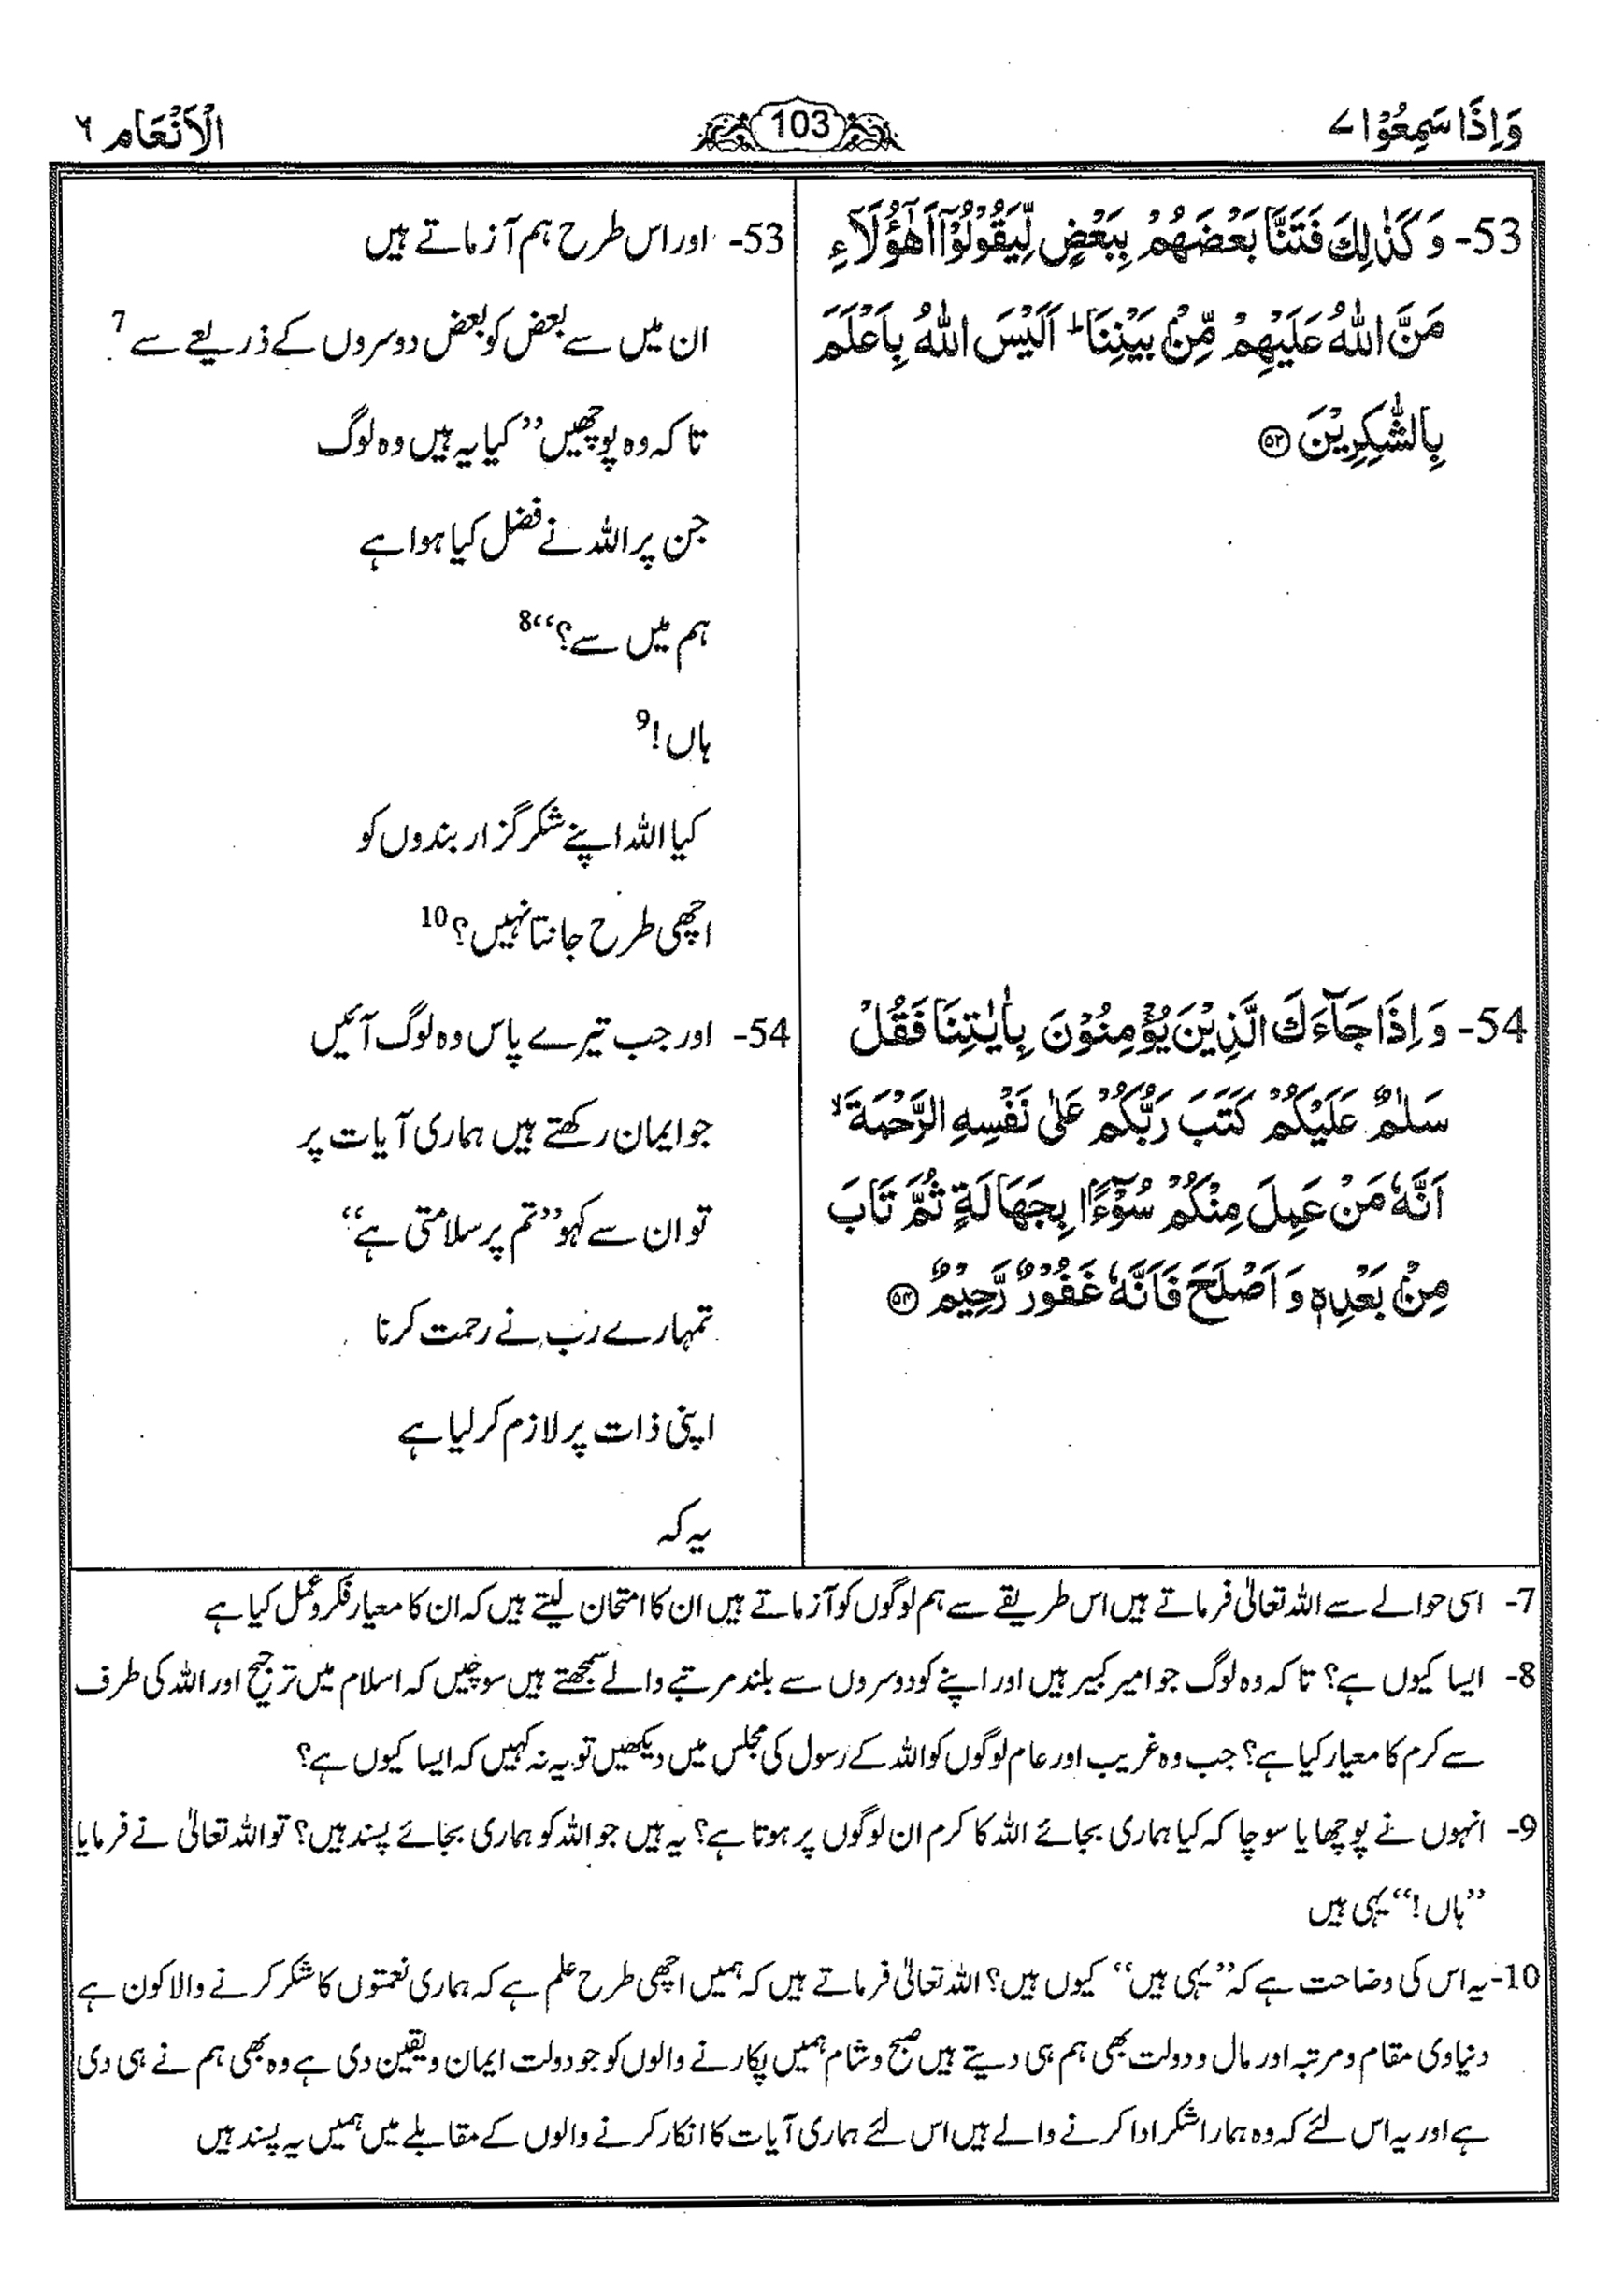 وَاِذَا سَمِعُوْا ۷
103
الْاَنْعَام ۶
53- وَ كَذٰلِكَ فَتَنَّا بَعْضَهُمْ بِبَعْضٍ لِّيَقُوْلُوْٓا اَهٰٓؤُلَآءِ
مَنَّ اللّٰهُ عَلَيْهِمْ مِّنْۢ بَيْنِنَا ؕ اَلَيْسَ اللّٰهُ بِاَعْلَمَ
بِالشّٰكِرِيْنَ ۝۵۳
54- وَ اِذَا جَآءَكَ الَّذِيْنَ يُؤْمِنُوْنَ بِاٰيٰتِنَا فَقُلْ
سَلٰمٌ عَلَيْكُمْ كَتَبَ رَبُّكُمْ عَلٰى نَفْسِهِ الرَّحْمَةَ ۙ
اَنَّهٗ مَنْ عَمِلَ مِنْكُمْ سُوْٓءًۢا بِجَهَالَةٍ ثُمَّ تَابَ
مِنْۢ بَعْدِهٖ وَ اَصْلَحَ فَاَنَّهٗ غَفُوْرٌ رَّحِيْمٌ ۝۵۴
53- اور اس طرح ہم آزماتے ہیں
ان میں سے بعض کو بعض دوسروں کے ذریعے سے 7
تا کہ وہ پوچھیں ’’کیا یہ ہیں وہ لوگ
جن پر اللہ نے فضل کیا ہوا ہے
ہم میں سے؟‘‘ 8
ہاں! 9
کیا اللہ اپنے شکر گزار بندوں کو
اچھی طرح جانتا نہیں؟ 10
54- اور جب تیرے پاس وہ لوگ آئیں
جو ایمان رکھتے ہیں ہماری آیات پر
تو ان سے کہو ’’تم پر سلامتی ہے‘‘
تمہارے رب نے رحمت کرنا
اپنی ذات پر لازم کر لیا ہے
یہ کہ
7- اسی حوالے سے اللہ تعالیٰ فرماتے ہیں اس طریقے سے ہم لوگوں کو آزماتے ہیں ان کا امتحان لیتے ہیں کہ ان کا معیار فکر و عمل کیا ہے
8- ایسا کیوں ہے؟ تا کہ وہ لوگ جو امیر کبیر ہیں اور اپنے کو دوسروں سے بلند مرتبے والے سمجھتے ہیں سوچیں کہ اسلام میں ترجیح اور اللہ کی طرف
سے کرم کا معیار کیا ہے؟ جب وہ غریب اور عام لوگوں کو اللہ کے رسول کی مجلس میں دیکھیں تو یہ نہ کہیں کہ ایسا کیوں ہے؟
9- انہوں نے پوچھا یا سوچا کہ کیا ہماری بجائے اللہ کا کرم ان لوگوں پر ہوتا ہے؟ یہ ہیں جو اللہ کو ہماری بجائے پسند ہیں؟ تو اللہ تعالیٰ نے فرمایا
’’ہاں!‘‘ یہی ہیں
10- یہ اس کی وضاحت ہے کہ ’’یہی ہیں‘‘ کیوں ہیں؟ اللہ تعالیٰ فرماتے ہیں کہ ہمیں اچھی طرح علم ہے کہ ہماری نعمتوں کا شکر کرنے والا کون ہے
دنیاوی مقام و مرتبہ اور مال و دولت بھی ہم ہی دیتے ہیں صبح و شام ہمیں پکارنے والوں کو جو دولت ایمان و یقین دی ہے وہ بھی ہم نے ہی دی
ہے اور یہ اس لئے کہ وہ ہمارا شکر ادا کرنے والے ہیں اس لئے ہماری آیات کا انکار کرنے والوں کے مقابلے میں ہمیں یہ پسند ہیں